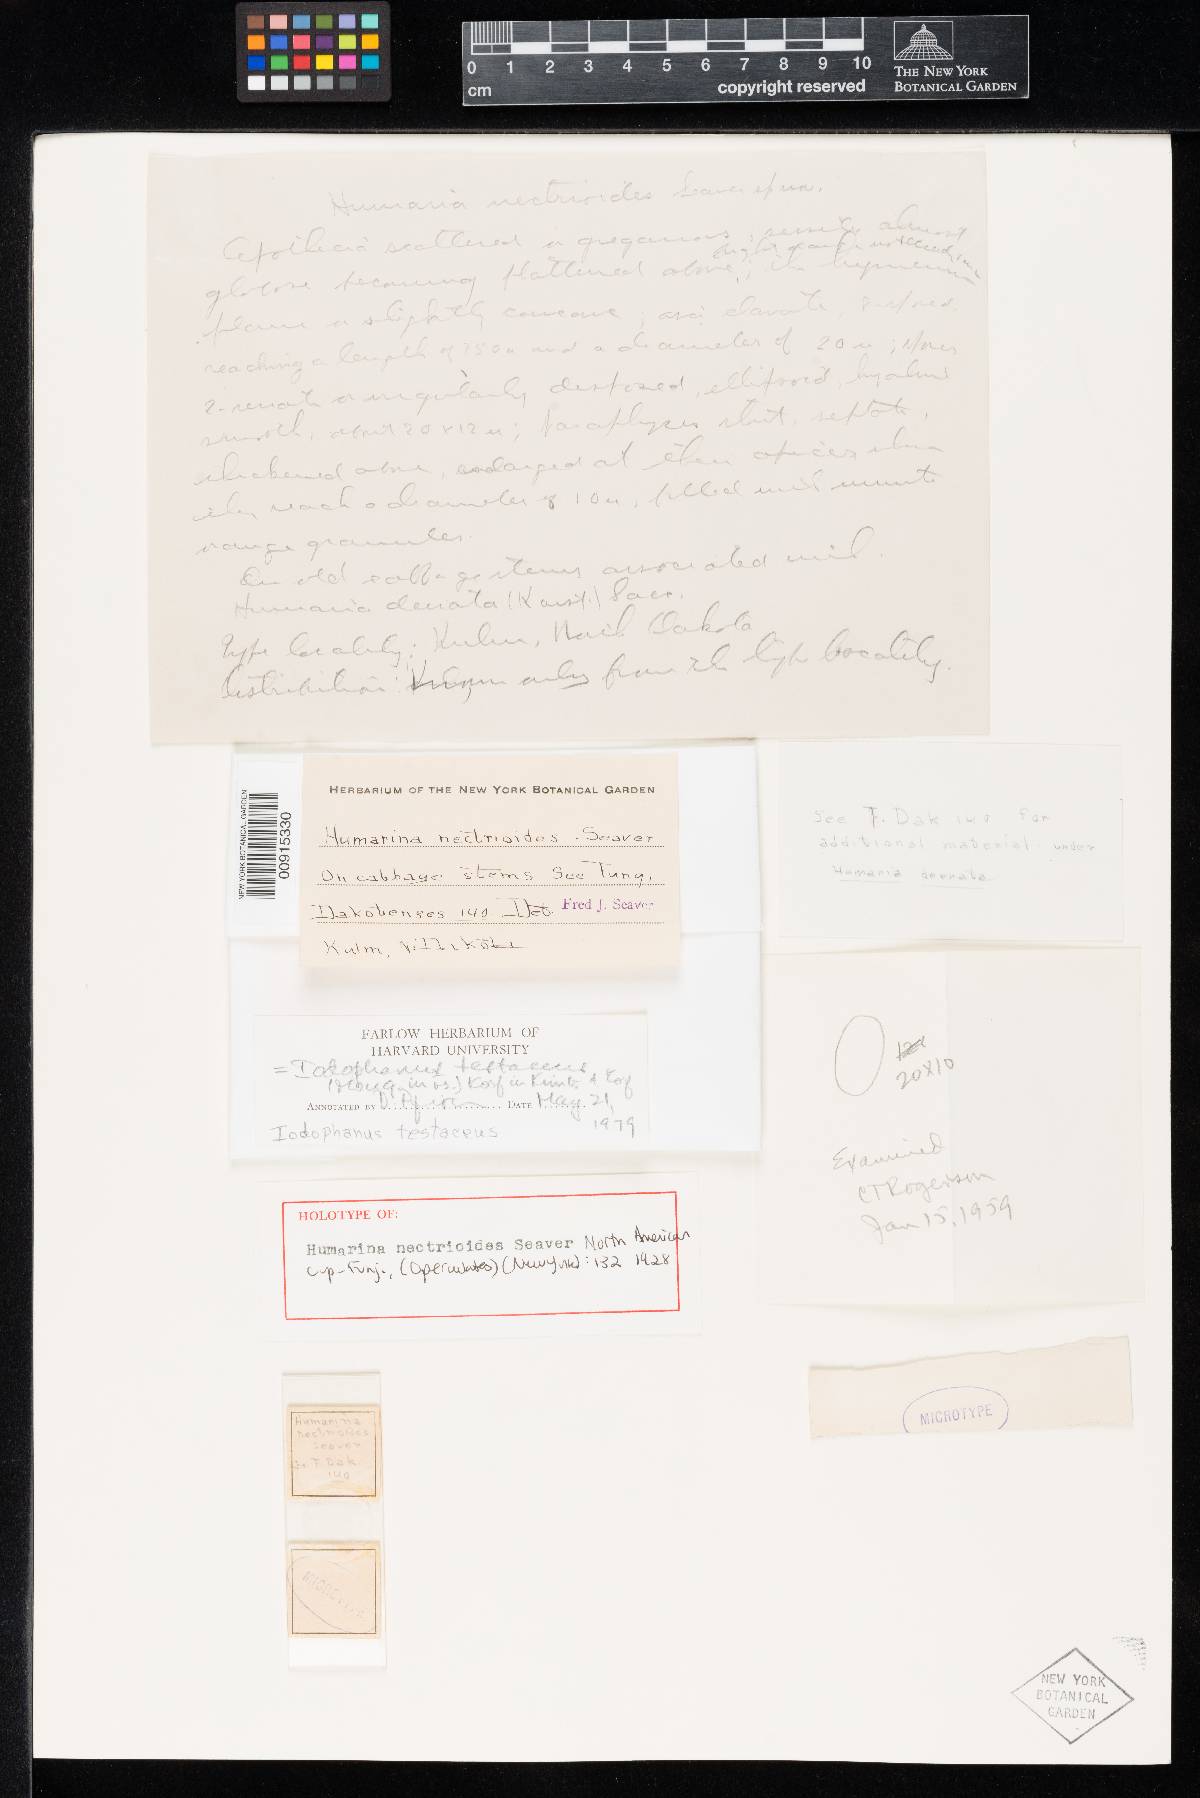 0 1 2 3 4 5 6 7 8 9 10
cm
copyright reserved
THE NEW YORK
BOTANICAL GARDEN
Humaria nectrioides Seaver sp. nov.
Apothecia scattered or gregarious, sessile, almost
globose becoming flattened above; the hymenium
plane or slightly concave; asci clavate, 8-spored
reaching a length of 250 u and a diameter of 20 u; spores
2-seriate or irregularly disposed, ellipsoid, hyaline
smooth, about 20 x 12 u; paraphyses stout, septate,
thickened above, enlarged at their apices where
they reach a diameter of 10 u, filled with minute
orange granules.
On old cabbage stems associated with
Humaria deerata (Karst.) Sacc.
Type locality: Kulm, North Dakota
Distribution: Known only from the type locality.
NEW YORK BOTANICAL GARDEN
00915330
HERBARIUM OF THE NEW YORK BOTANICAL GARDEN
Humarina nectrioides Seaver
On cabbage stems See Fung.
Dakotenses 140 Det. Fred J. Seaver
Kulm, N. Dakota
See F. Dak 140 for
additional material under
Humaria deerata
FARLOW HERBARIUM OF
HARVARD UNIVERSITY
= Iodophanus testaceus
(Moug. in Fr.) Korf in Kimbr. & Korf
ANNOTATED BY D. Pfister DATE May 21,
1979
Iodophanus testaceus
20x10
Examined
CT Rogerson
Jan 15, 1959
HOLOTYPE OF:
Humarina nectrioides Seaver North American
Cup-Fungi, (Operculates) (New York): 132 1928
MICROTYPE
Humarina
nectrioides
Seaver
F. Dak
140
MICROTYPE
NEW YORK
BOTANICAL
GARDEN